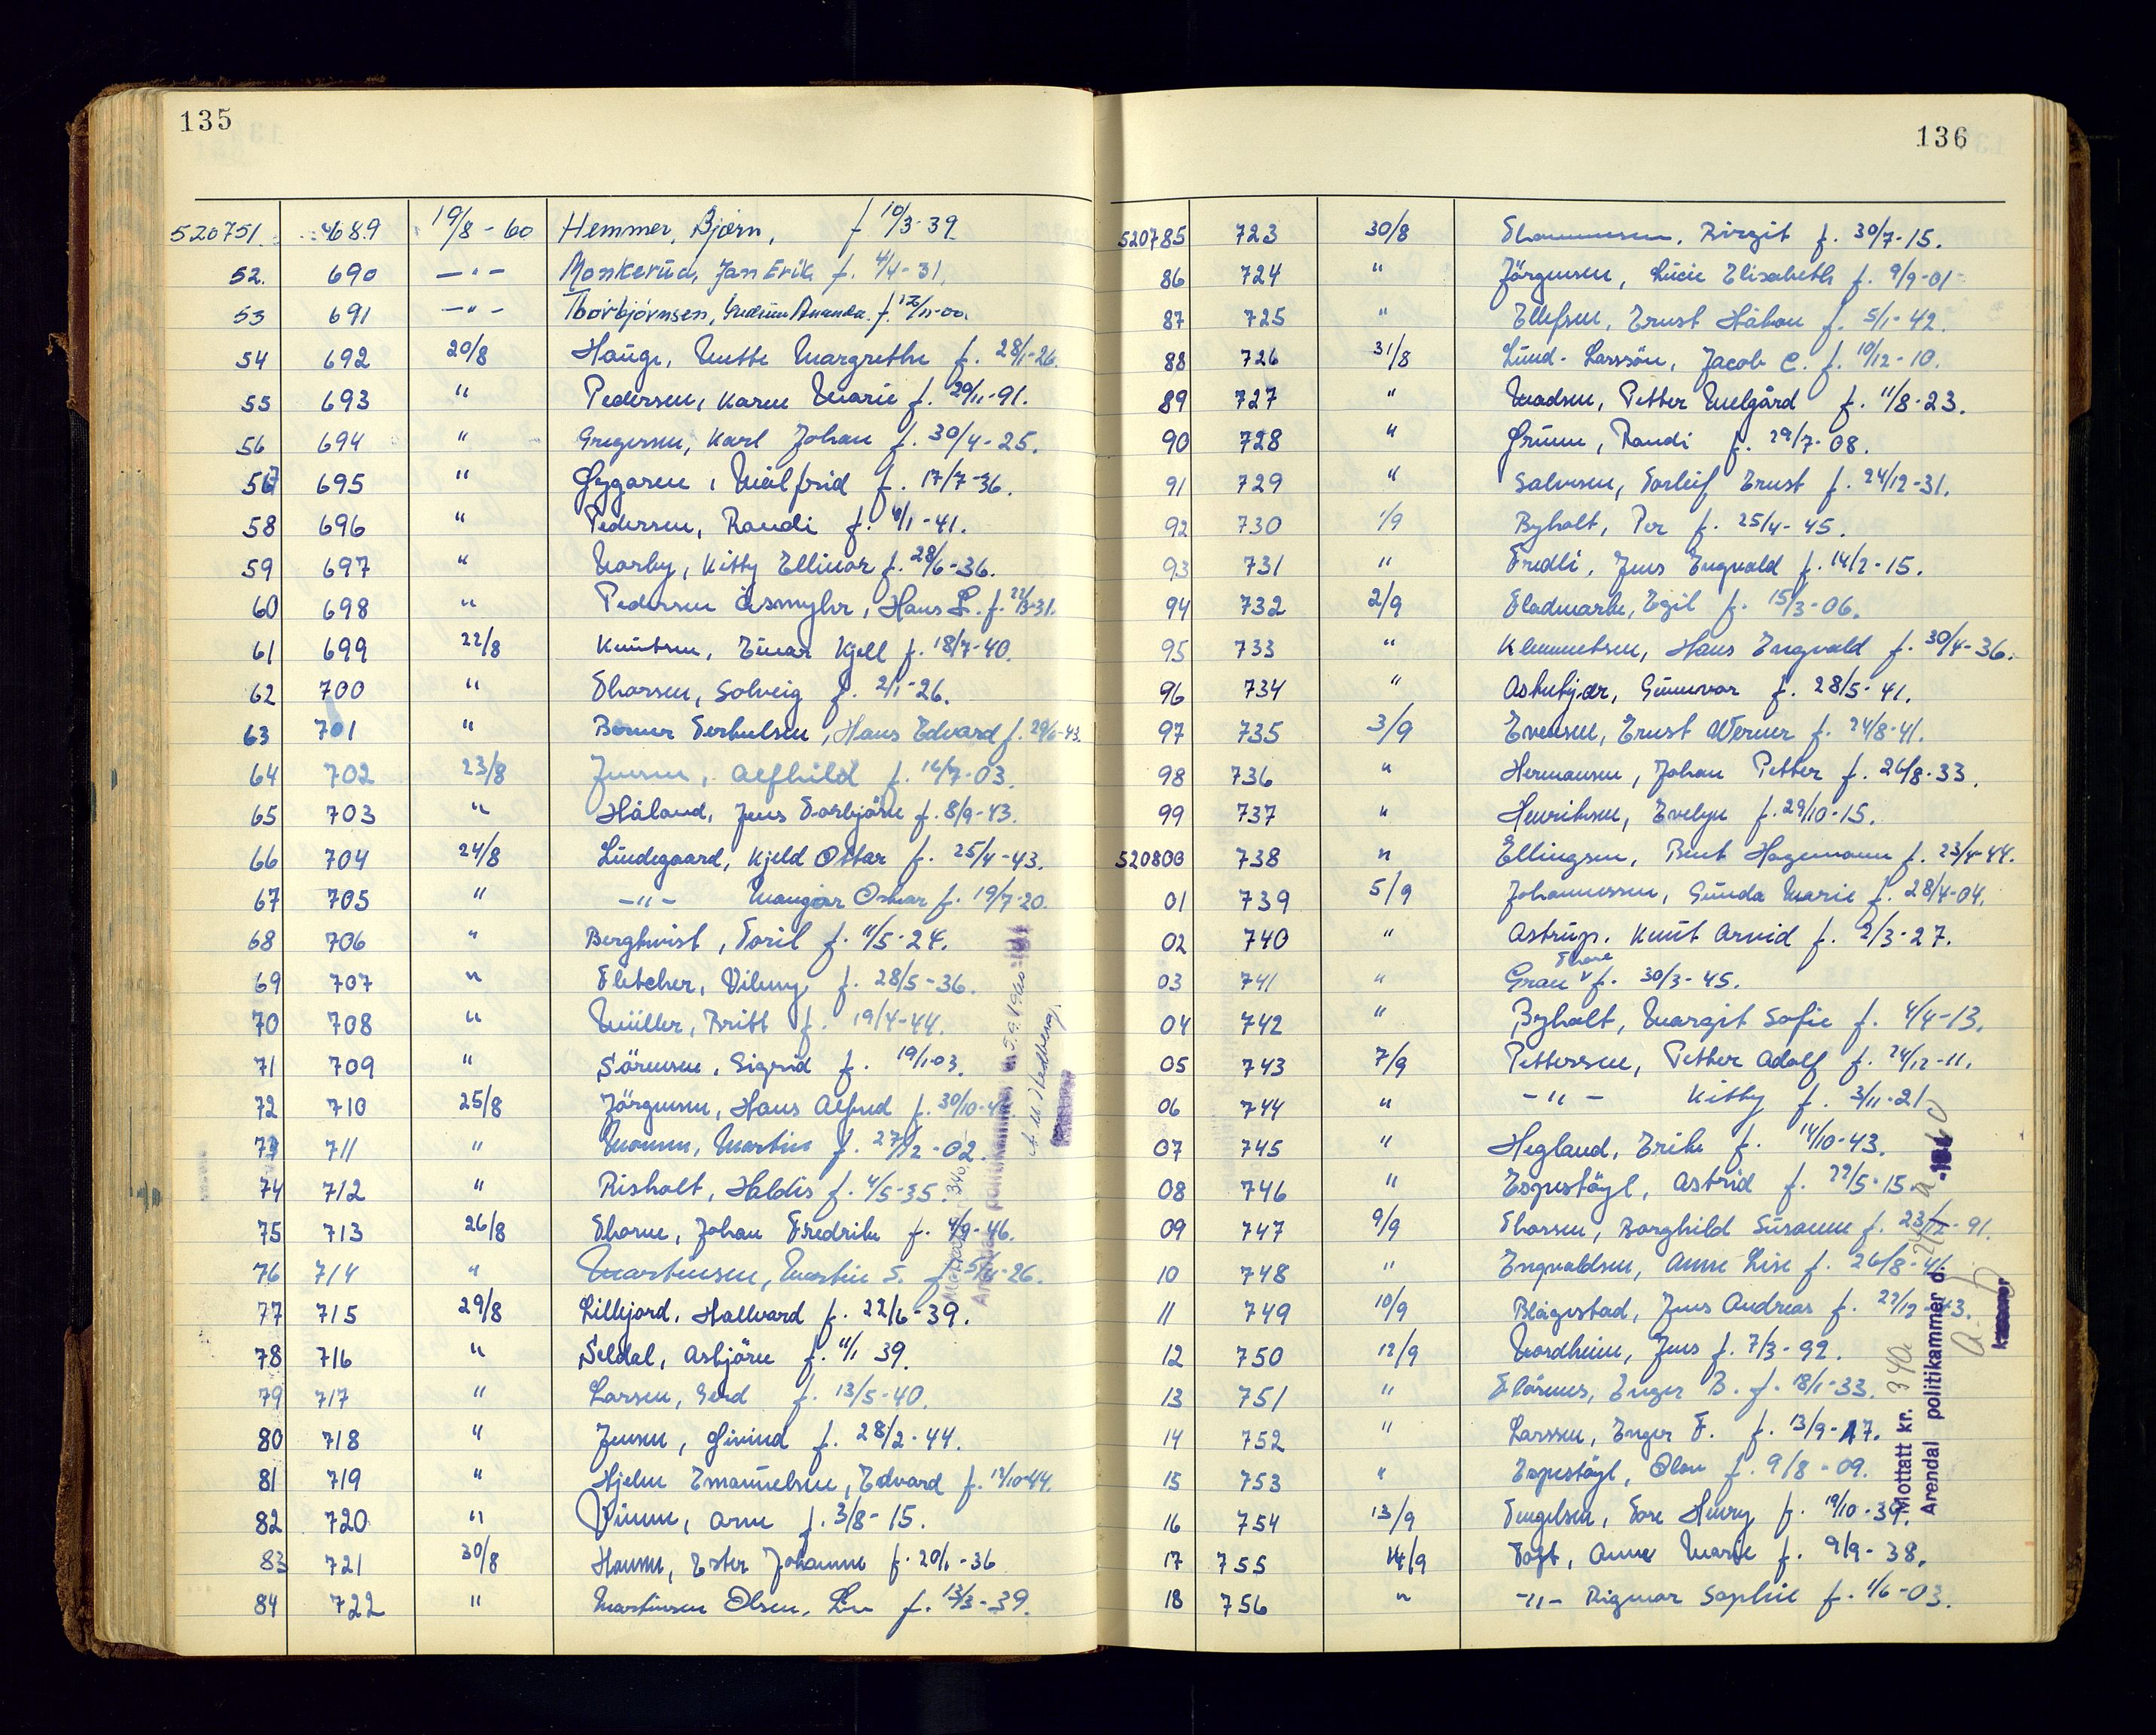 135
520751. 689 19/8 - 60 Hemmer, Bjørn, f 10/3-39.
52. 690 — " — Monkerud, Jan Erik f. 4/4-31.
53 691 — " — Thorbjørnsen, Gudrun Amanda f. 12/11-00.
54 692 20/8 Hauge, Mette Margrethe f. 28/1-26.
55 693 " Pedersen, Karen Marie f. 29/11-91.
56 694 " Gregersen, Karl Johan f. 30/4-25.
57 695 " Gyggaren, Målfrid f. 17/7-36.
58 696 " Pedersen, Randi f. 6/1-41.
59 697 " Norby, Kitty Ellinor f. 28/6-36.
60 698 " Pedersen Åsmyhr, Hans L. f. 22/3-31.
61 699 22/8 Knutsen, Einar Kjell f. 18/7-40.
62 700 " Thorsen, Solveig f. 2/1-26.
63 701 " Bomer Terkelsen, Hans Edvard f. 29/6-43.
64 702 23/8 Jensen, Alfhild f. 16/7-03.
65 703 " Håland, Jens Torbjörn f. 8/9-43.
66 704 24/8 Lindegaard, Kjeld Ottar f. 25/4-43.
67 705 " —"— Mangor Oskar f. 19/7-20.
68 706 " Berghvist, Toril f. 11/5-24.
69 707 " Fletcher, Vilmy f. 28/5-36.
70 708 " Müller, Britt f. 19/4-44.
71 709 " Sörensen, Sigrid f. 19/1-03.
72 710 25/8 Jörgensen, Hans Alfred f. 30/10-4
73 711 " Monsen, Martin f. 27/12-02.
74 712 " Risholt, Haldis f. 4/5-35.
75 713 26/8 Thorne, Johan Fredrik f. 4/9-46.
76 714 " Martinsen, Martin S. f. 5/11-26.
77 715 29/8 Lilljord, Hallvard f. 22/6-39.
78 716 " Seldal, Asbjörn f. 11/1 39.
79 717 " Larsen, Gerd f. 13/5-40.
80 718 " Jensen, Öivind f. 28/2-44.
81 719 " Hjelm Emanuelsen, Edvard f. 12/10-44.
82 720 " Vinne, Arne f. 3/8-15.
83 721 30/8 Hansen, Ester Johanne f. 20/1-36
84 722 " Martinsen Olsen, Liv f. 13/3-39.
Mottatt kr. 340
Arendal politikammer 5.9.1960
136
520785 723 30/8 Thommesen, Birgit f. 30/7-15.
86 724 " Jörgensen, Lucie Elisabeth f. 9/9-01
87 725 " Ellefsen, Ernst Håkon f. 5/1-42.
88 726 31/8 Lund-Larssön, Jacob C. f. 10/12-10.
89 727 " Madsen, Petter Melgård f. 11/8-23.
90 728 " Grunn, Randi f. 29/7-08.
91 729 " Salvesen, Torleif Ernst f. 24/12-31.
92 730 1/9 Byholt, Per f. 25/4-45.
93 731 " Fredli, Jens Engvald f. 14/2-15.
94 732 2/9 Fladmark, Egil f. 15/3-06.
95 733 " Klemmetsen, Hans Engvald f. 30/4-36.
96 734 " Askebjær, Gunnvor f. 28/5-41.
97 735 3/9 Evensen, Ernst Werner f. 24/8-41.
98 736 " Hermansen, Johan Petter f. 26/8-33.
99 737 " Henriksen, Evelyn f. 29/10-15.
520800 738 " Ellingsen, Bent Hagemann f. 23/4-44.
01 739 5/9 Johannessen, Gunda Marie f. 28/4-04.
02 740 " Astrup, Knut Arvid f. 2/3-27.
03 741 " Grau Thore f. 30/3-45.
04 742 " Byholt, Margit Sofie f. 4/4-13.
05 743 7/9 Pettersen, Petter Adolf f. 24/12-11.
06 744 " —"— Kitty f. 3/11-21
07 745 " Hegland, Erik f. 14/10-43.
08 746 " Espestöyl, Astrid f. 22/5-15.
09 747 9/9 Thorsen, Borghild Susanne f. 23/12-91.
10 748 " Engvaldsen, Anne Lise f. 26/8-41.
11 749 10/9 Blågestad, Jens Andreas f. 27/12-43.
12 750 12/9 Nordheim, Jens f. 7/3-92.
13 751 " Flörenes, Enger B. f. 18/1-33.
14 752 " Larssen, Enger F. f. 13/9-17.
15 753 " Espestöyl, Olav f. 9/8-09.
16 754 13/9 Tengelsen, Tore Henry f. 19/10-39.
17 755 14/9 Vogt, Anne Marie f. 9/9-38.
18 756 " —"— Rigmor Sophie f. 1/6-03.
Mottatt kr. 340
Arendal politikammer d.